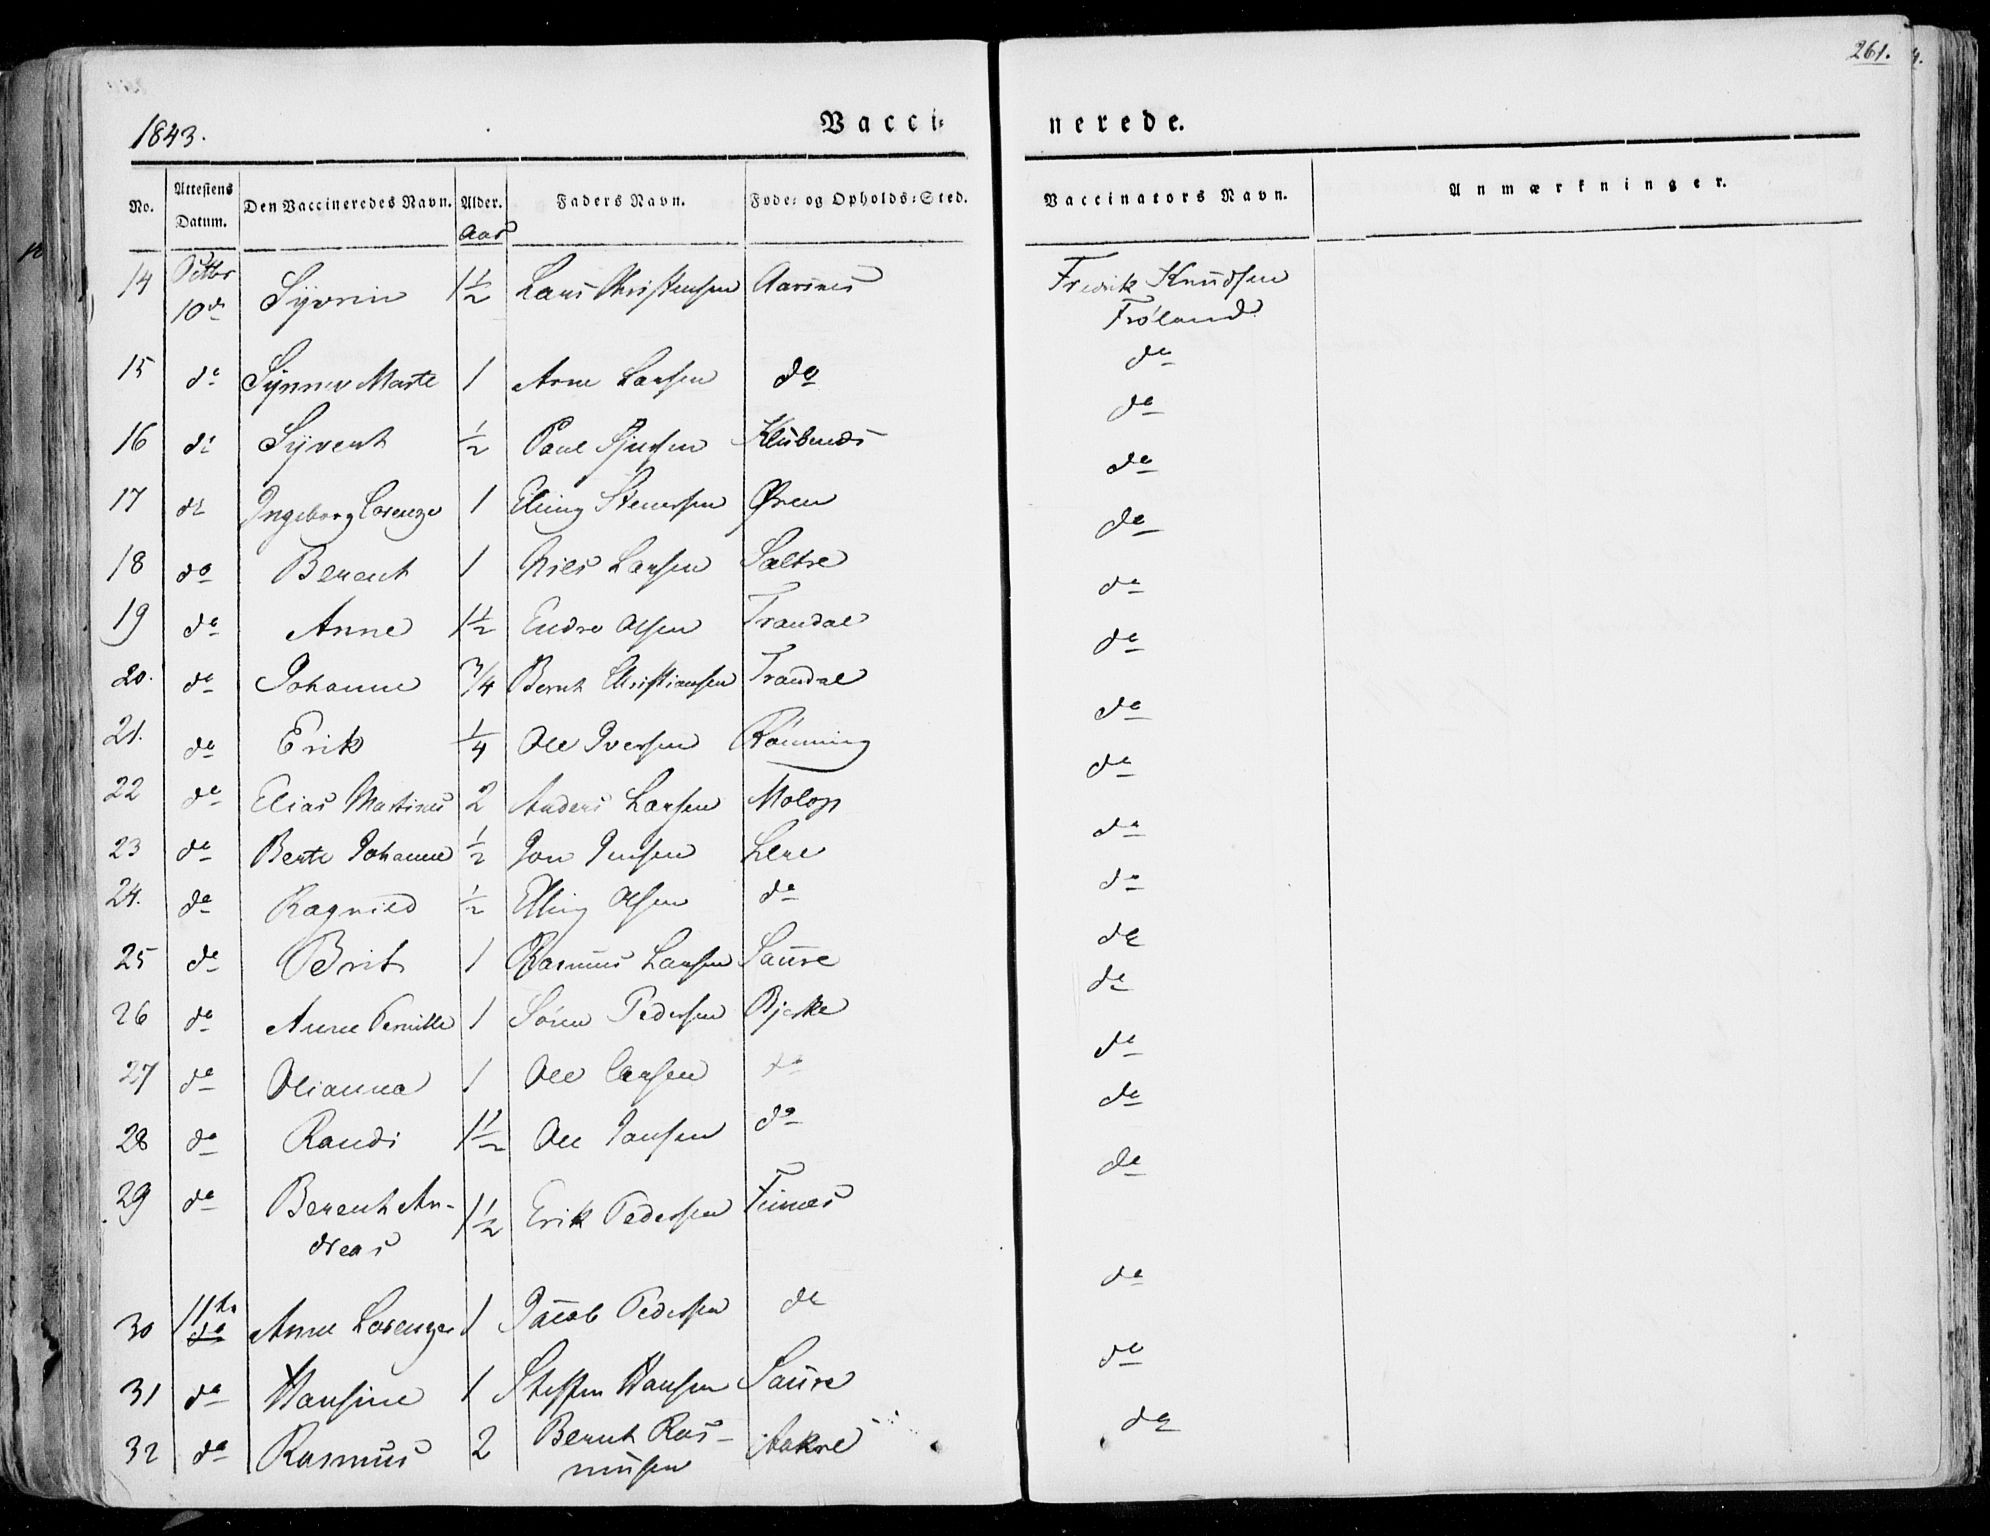 261.
1843.
Vacci- nerede.
No. Attestens Datum. Den Vaccineredes Navn. Alder. Faders Navn. Føde- og Opholds-Sted. Vaccinators Navn. Anmærkninger.
Aar
14 Octbr 10de Syvrin 1½ Lars Christensen Aarsnes Fredrik Knudsen Frøland
15 do Synnev Marte 1 Arne Larsen do do
16 do Syvert ½ Paul Klubnæs do
17 do Ingeborg Lorenze 1 Elling Stenersen Øren do
18 do Berent 1 Nils Larsen Sætre do
19 do Anne 1½ Endre Olsen Trandal do
20. do Johanne 3/4 Bernt Christiansen Trandal do
21. do Erik ¼ Ole Iversen Rønning do
22 do Elias Martinus 2 Anders Larsen do
23 do Berte Johanne ½ Jon Jensen do
24. do Ragnild ½ Elling Olsen do do
25 do Brit 1 Rasmus Larsen Saure do
26 do Anne Pernille 1 Søren Pedersen Bjerke do
27 do Olianna 1 Ole Larsen do do
28 do Randi 1½ Ole Jansen do do
29 do Berent An-
dreas 1½ Erik Pedersen Finnes do
30 11te do Anne Lorenze 1 Jacob Pedersen do do
31 do Hansine 1 Steffen Hansen Saure do
32 do Rasmus 2 Bernt Ras-
musen Aakre do